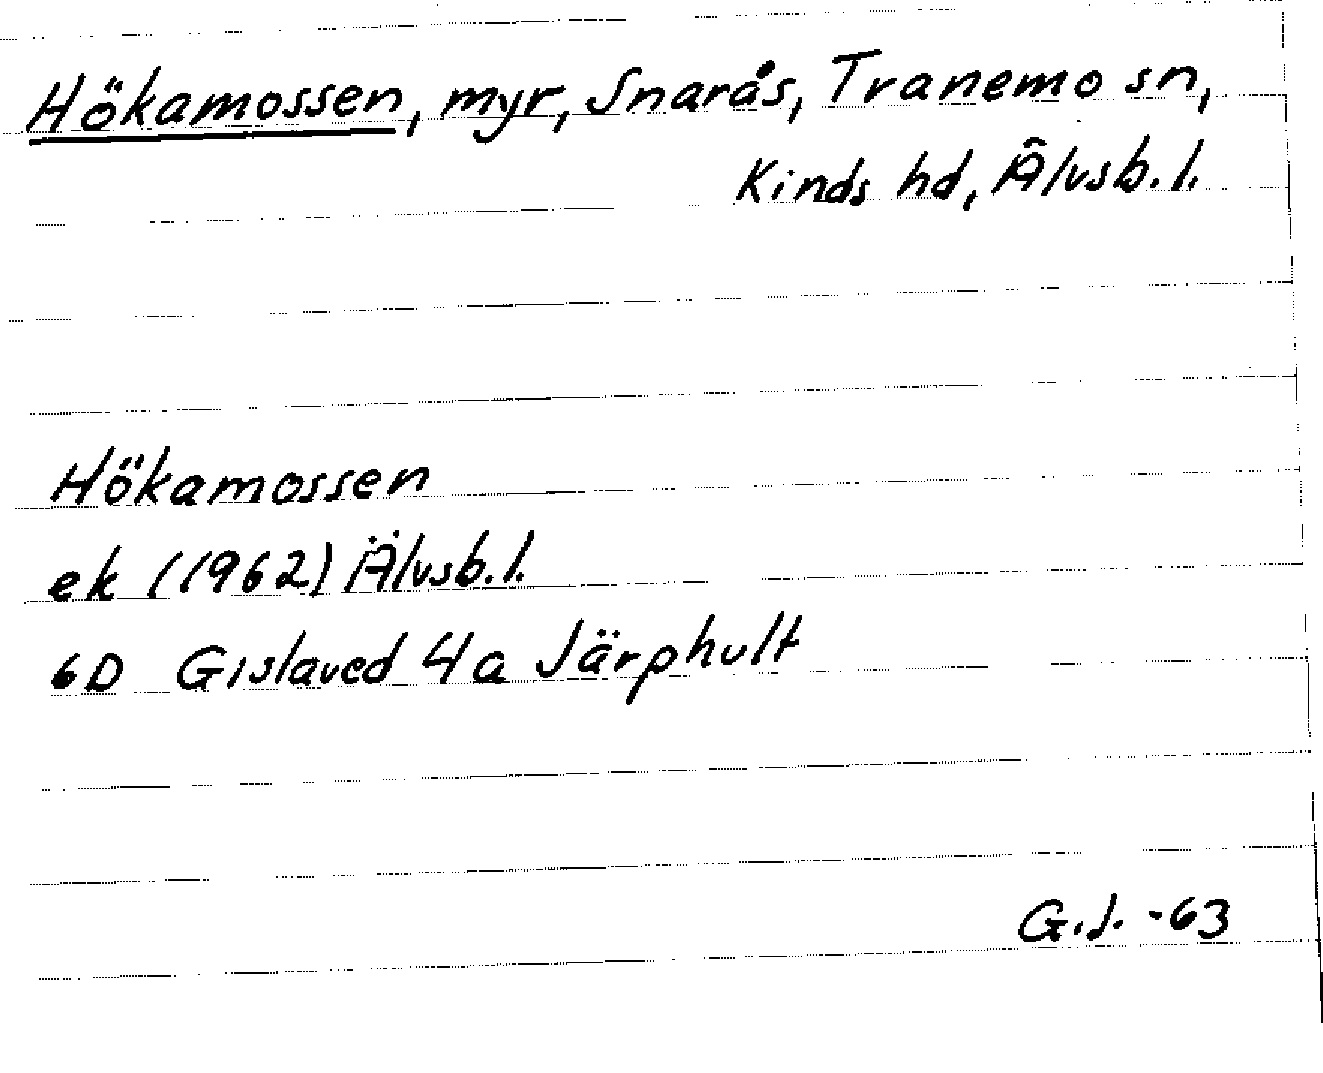 Hökamossen, myr, Snarås, Tranemo sn,
Kinds hd, Älvsb. l.
Hökamossen
ek (1962) Älvsb. l.
6D Gislaved 4a Järphult
G.J. -63